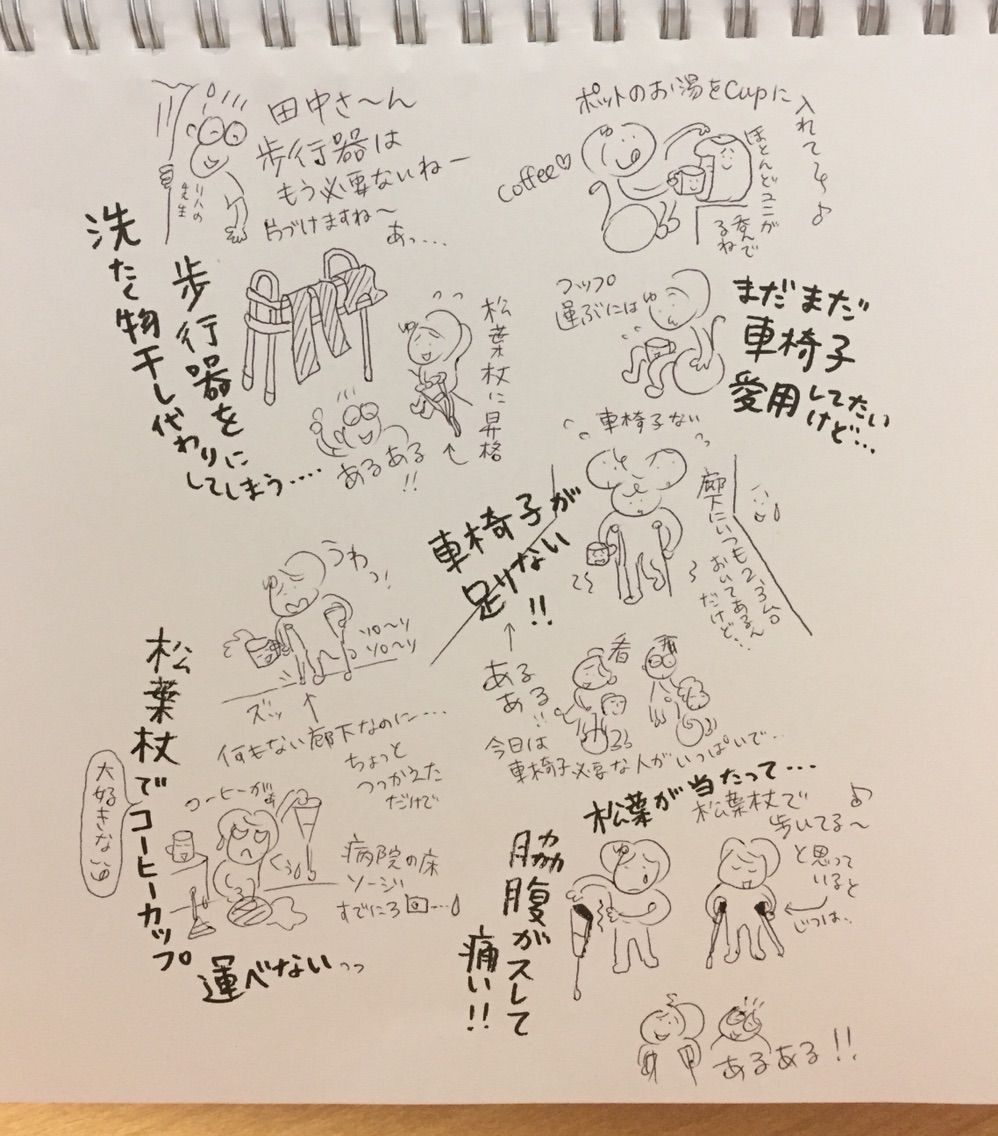 田中さ〜ん
歩行器は
もう必要ないねー
片づけますね〜
あっ…
リハの
先生
洗たく物干し代わりに
歩行器を
してしまう‥‥
松葉杖に昇格
あるある!!
ポットのお湯をCupに
入れて
coffee♡
ほとんどユニが
呑んで
るね
カップ
運ぶには
まだまだ
車椅子
愛用してたい
けど…
車椅子ない
廊下にいつも2,3台
おいてあるん
だけど、、
車椅子が
足りない
!!
ある
ある!!
看
今日は
車椅子必要な人がいっぱいで…
うわっ!
ソロ〜リ
ソロ〜リ
ズッ
何もない廊下なのに…
ちょっと
つっかえた
だけで
松葉杖でコーヒーカップ
大好きな
コーヒーがぁ
くぅ
病院の床
ソージ
すでに3回…
運べないっっ
松葉が当たって…
松葉杖で
歩いてる〜♪
と思って
いると
じつは、、
脇腹がスレて
痛い!!
あるある!!